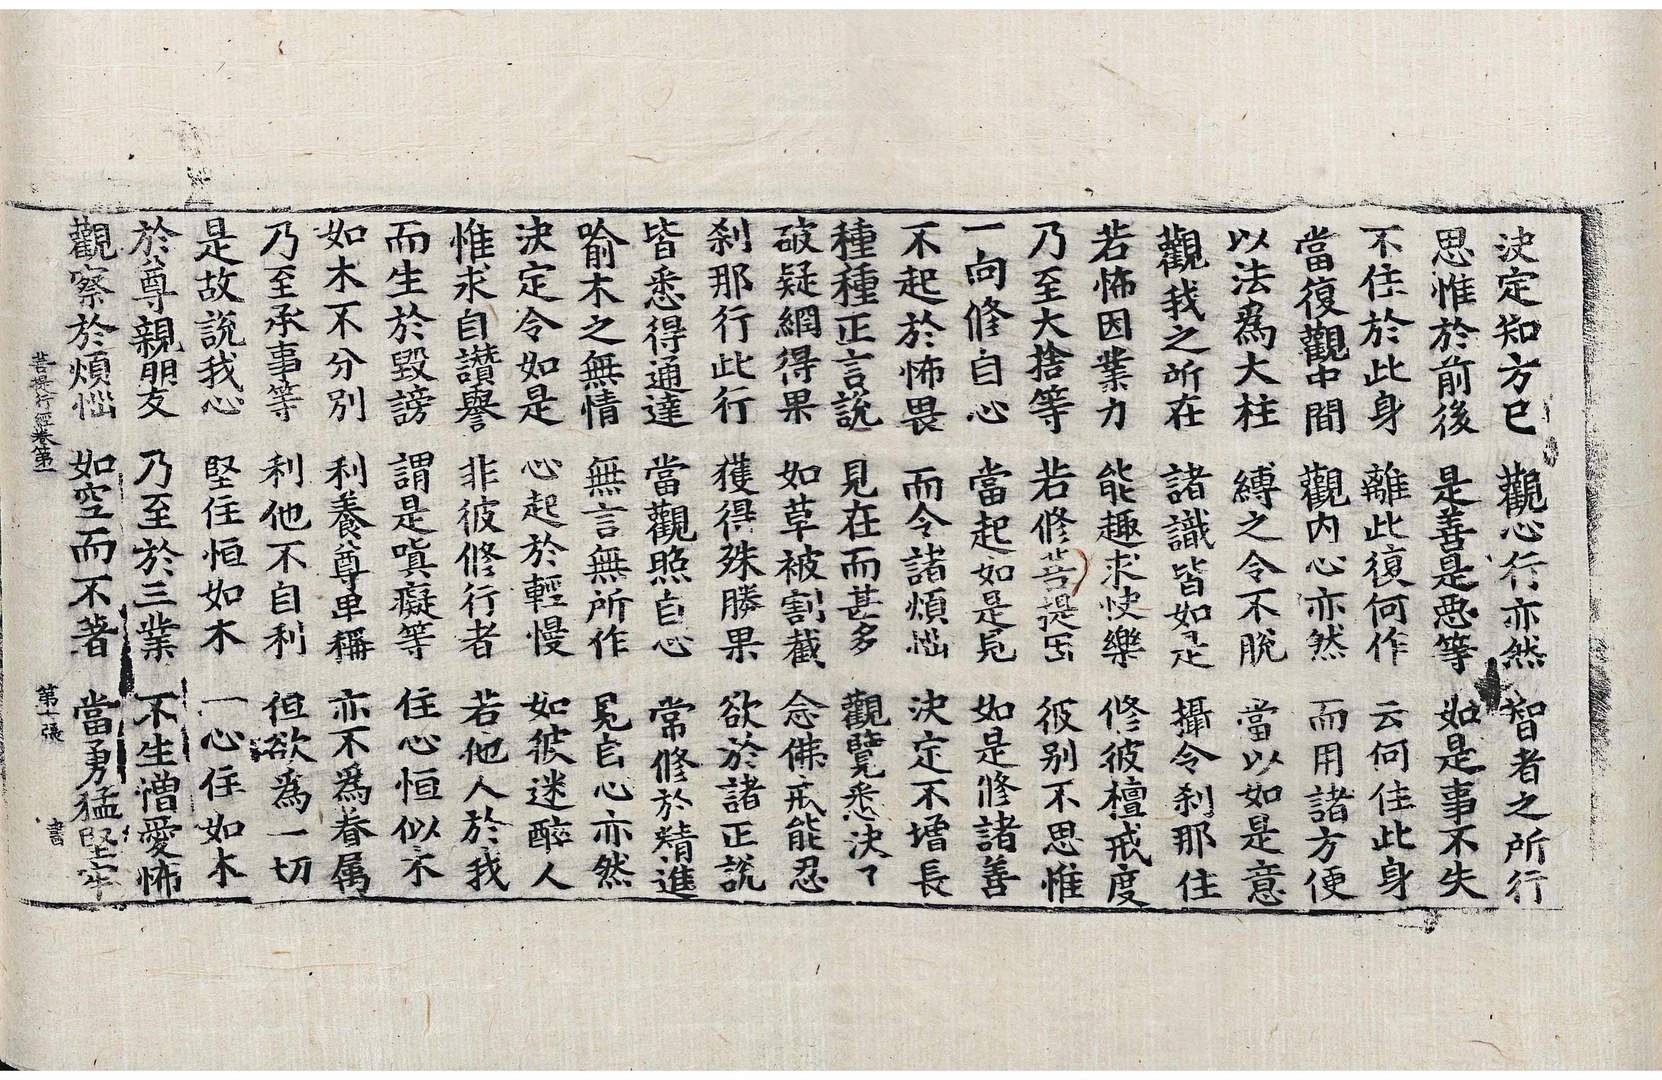 決定知方已 觀心行亦然 智者之所行
思惟於前後 是善是惡等 如是事不失
不住於此身 離此復何作 云何住此身
當復觀中間 觀内心亦然 而用諸方便
以法為大柱 縛之令不脫 當以如是意
觀我之所在 諸識皆如是 攝令刹那住
若怖因業力 能趣求快樂 修彼檀戒度
乃至大捨等 若修菩提因 彼別不思惟
一向修自心 當起如是見 如是修諸善
不起於怖畏 而令諸煩惱 決定不增長
種種正言說 見在而甚多 觀覽悉決了
破疑網得果 如草被割截 念佛戒能忍
刹那行此行 獲得殊勝果 欲於諸正說
皆悉得通達 當觀照自心 常修於精進
喻木之無情 無言無所作 見自心亦然
決定令如是 心起於輕慢 如彼迷醉人
惟求自讃譽 非彼修行者 若他人於我
而生於毀謗 謂是嗔癡等 住心恒似木
如木不分別 利養尊卑稱 亦不為眷属
乃至承事等 利他不自利 但欲為一切
是故說我心 堅住恒如木 一心住如木
於尊親朋友 乃至於三業 不生憎愛怖
觀察於煩惱 如空而不著 當勇猛堅牢
菩提行經卷第一 第十張 書